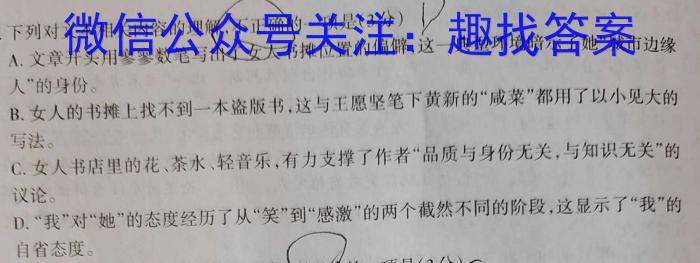 下列对 相 内容的理解,不正确的一项是(3分)
微信公众号关注：趣找答案
A. 文章开头用寥寥数笔写出了女人书摊位置的偏僻,这一 环境暗示了她“城市边缘
人”的身份。
B. 女人的书摊上找不到一本盗版书,这与王愿坚笔下黄新的“咸菜”都用了以小见大的
写法。
C. 女人书店里的花、茶水、轻音乐,有力支撑了作者“品质与身份无关,与知识无关”的
议论。
D. “我”对“她”的态度经历了从“笑”到“感激”的两个截然不同的阶段,这显示了“我”的
自省态度。
项是(3分)